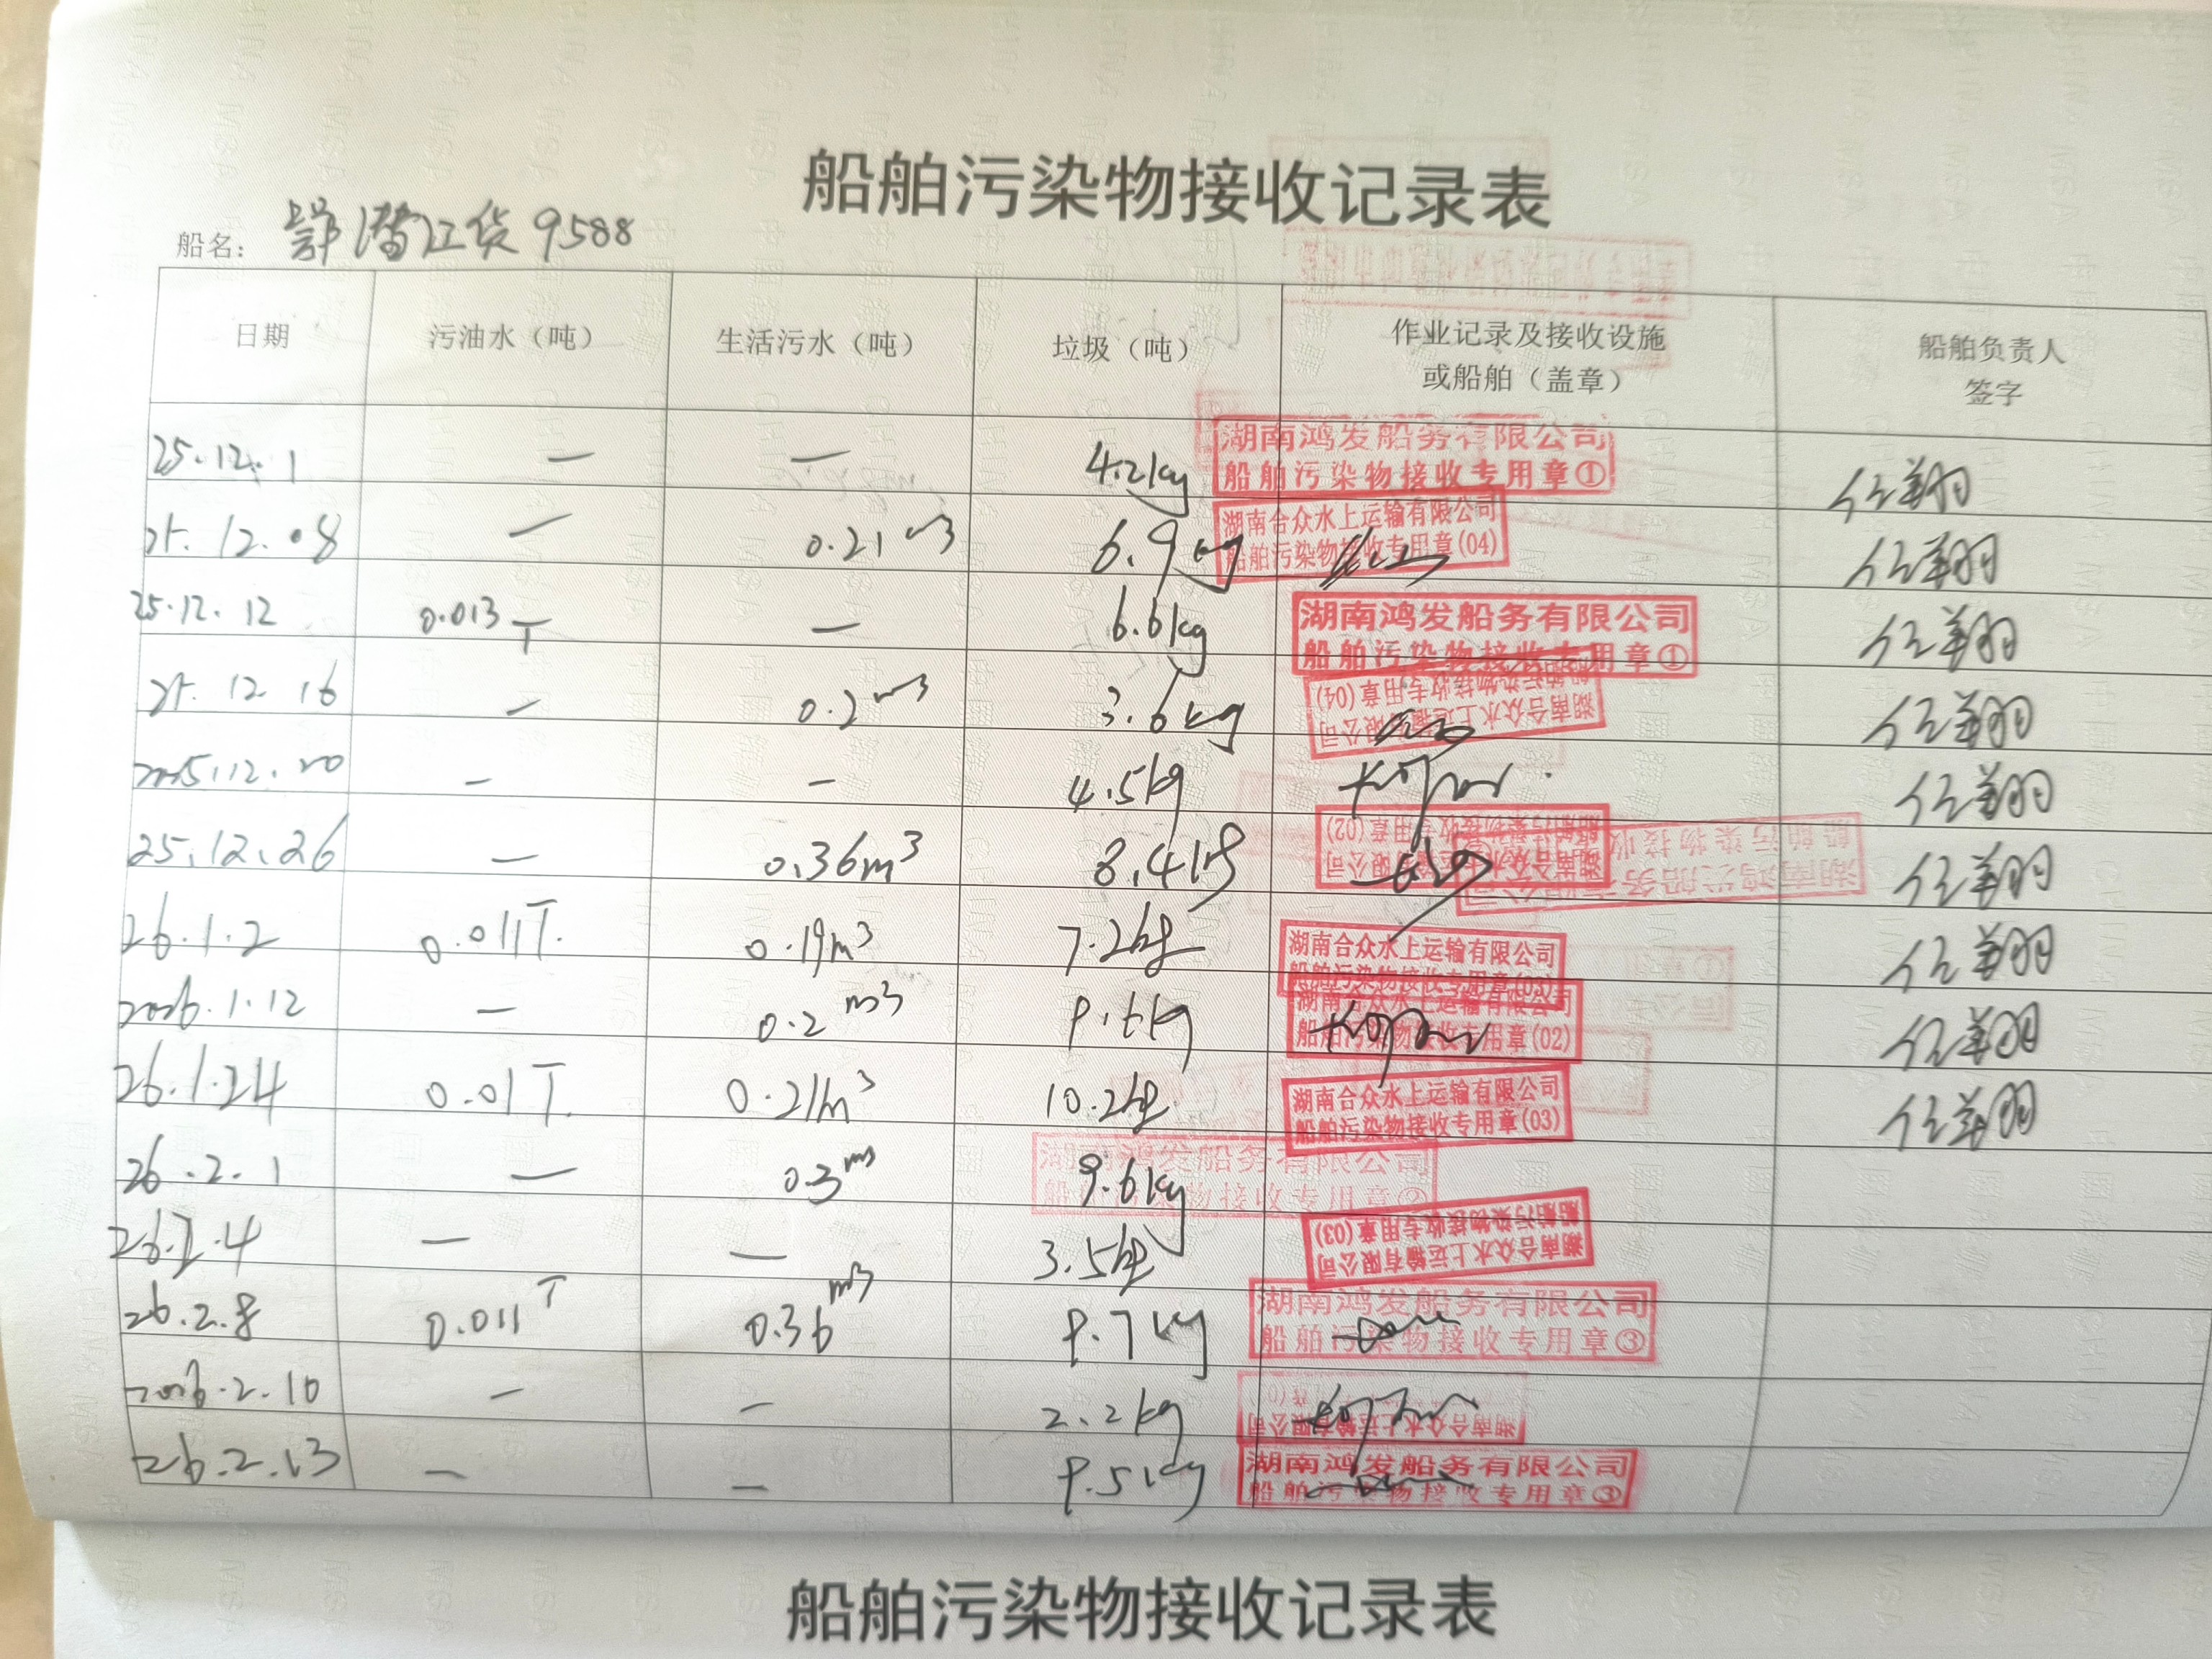 船舶污染物接收记录表
船名： 鄂潜江货9588
日期 污油水（吨） 生活污水（吨） 垃圾（吨） 作业记录及接收设施或船舶（盖章） 船舶负责人签字
25.12.1 — — 4.2kg 湖南鸿发船务有限公司 船舶污染物接收专用章① 任翔
25.12.08 — 0.21m3 6.9kg 湖南合众水上运输有限公司 船舶污染物接收专用章(04) 任翔
25.12.12 0.013T — 6.6kg 湖南鸿发船务有限公司 船舶污染物接收专用章① 任翔
25.12 16 — 0.2m3 3.6kg 湖南合众水上运输有限公司 船舶污染物接收专用章(04) 任翔
2025.12.20 — — 4.5kg 任翔
25.12.26 — 0.36m3 8.4kg 湖南合众水上运输有限公司 船舶污染物接收专用章(02) 湖南鸿发船务有限公司 船舶污染物接收 任翔
26.1.2 0.011T. 0.19m3 7.2kg 湖南合众水上运输有限公司 船舶污染物接收专用章(03) 任翔
2026.1.12 — 0.2m3 9.6kg 湖南合众水上运输有限公司 船舶污染物接收专用章(02) 任翔
26.1.24 0.01T. 0.21m3 10.2kg 湖南合众水上运输有限公司 船舶污染物接收专用章(03) 任翔
26.2.1 — 0.3m3 9.6kg 湖南鸿发船务有限公司 船舶污染物接收专用章②
26.2.4 — — 3.5kg 湖南合众水上运输有限公司 船舶污染物接收专用章(03)
26.2.8 0.011T 0.36m3 9.7kg 湖南鸿发船务有限公司 船舶污染物接收专用章③
2026.2.10 — — 2.2kg 湖南合众水上运输有限公司
26.2.13 — — 9.5kg 湖南鸿发船务有限公司 船舶污染物接收专用章③
船舶污染物接收记录表